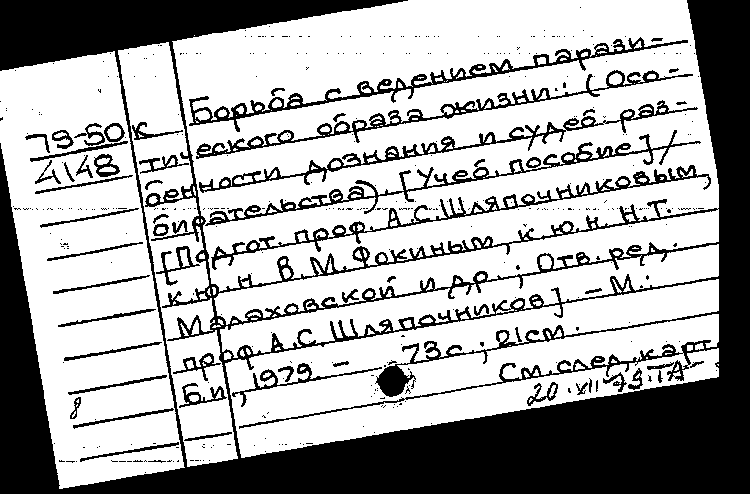 Борьба с ведением парази-
79-50к
4148
тического образа жизни: (Осо-
бенности дознания и судеб. раз-
бирательства). [Учеб. пособие] /
[Подгот. проф. А.С.Шляпочниковым,
к.ю.н. В.М.Фокиным, к.ю.н. Н.Т.
Малаховской и др.; Отв. ред.
проф. А.С.Шляпочников]. – М.:
Б.и., 1979. – 73с; 21см.
См.след.карт.
8
20.XII.79.ТА-